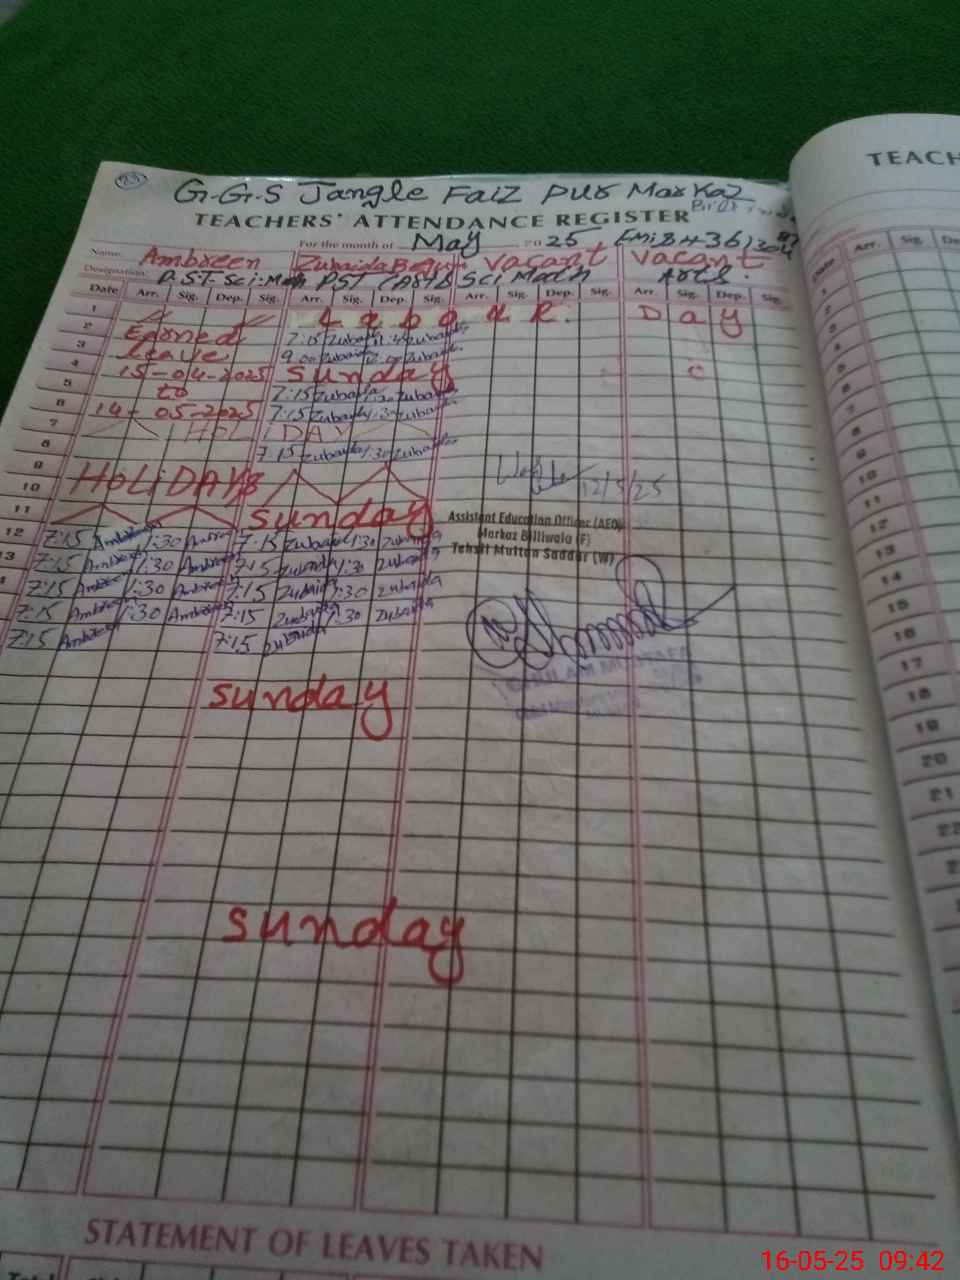 23
G.G.S Jangle Faiz Pur Markaz
TEACH
TEACHERS' ATTENDANCE REGISTER
For the month of May 2025
Name: Ambreen Zubaida Begum Vacant Vacant
Designation: P.S.T- Sci: Math PST (Arts) Sci Math Arts.
Date Arr. Sig. Dep. Sig. Arr. Sig. Dep. Sig. Arr. Sig. Dep. Sig. Arr. Sig. Dep. Sig.
Date Arr. Sig.
1 Labour Day
2 Earned 7:15 Zubaida Zubaida
3 Leave 9:00 Zubaida Zubaida
4 15-04-2025 Sunday
5 to 7:15 Zubaida 1:30 Zubaida
6 14-05-2025 7:15 Zubaida 1:30 Zubaida
7 HOLIDAY
8 7:15 Zubaida 1:30 Zubaida
9
10 HOLIDAYS
11 Sunday
12 7:15 Ambreen 1:30 Ambreen 7:15 Zubaida 1:30 Zubaida
13 7:15 Ambreen 1:30 Ambreen 7:15 Zubaida 1:30 Zubaida
7:15 Ambreen 1:30 Ambreen 7:15 Zubaida 1:30 Zubaida
7:15 Ambreen 1:30 Ambreen 7:15 Zubaida 1:30 Zubaida
7:15 Ambreen 7:15 Zubaida
12/5/25
Assistant Education Officer (AEO)
Markaz Billiwala (F)
Tehsil Multan Saddar (W)
Sunday
Sunday
1
2
3
4
5
6
7
8
9
10
11
12
13
14
15
16
17
18
19
20
21
22
STATEMENT OF LEAVES TAKEN
16-05-25 09:42